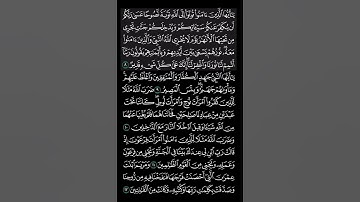 يَٰٓأَيُّهَا ٱلَّذِينَ ءَامَنُوا۟ تُوبُوٓا۟ إِلَى ٱللَّهِ تَوْبَةً نَّصُوحًا عَسَىٰ رَبُّكُمْ
أَن يُكَفِّرَ عَنكُمْ سَيِّـَٔاتِكُمْ وَيُدْخِلَكُمْ جَنَّٰتٍ تَجْرِى
مِن تَحْتِهَا ٱلْأَنْهَٰرُ يَوْمَ لَا يُخْزِى ٱللَّهُ ٱلنَّبِىَّ وَٱلَّذِينَ ءَامَنُوا۟
مَعَهُۥ نُورُهُمْ يَسْعَىٰ بَيْنَ أَيْدِيهِمْ وَبِأَيْمَٰنِهِمْ يَقُولُونَ رَبَّنَآ
أَتْمِمْ لَنَا نُورَنَا وَٱغْفِرْ لَنَآ إِنَّكَ عَلَىٰ كُلِّ شَىْءٍ قَدِيرٌ
٨ يَٰٓأَيُّهَا ٱلنَّبِىُّ جَٰهِدِ ٱلْكُفَّارَ وَٱلْمُنَٰفِقِينَ وَٱغْلُظْ عَلَيْهِمْ
وَمَأْوَىٰهُمْ جَهَنَّمُ وَبِئْسَ ٱلْمَصِيرُ ٩ ضَرَبَ ٱللَّهُ مَثَلًا
لِّلَّذِينَ كَفَرُوا۟ ٱمْرَأَتَ نُوحٍ وَٱمْرَأَتَ لُوطٍ كَانَتَا تَحْتَ
عَبْدَيْنِ مِنْ عِبَادِنَا صَٰلِحَيْنِ فَخَانَتَاهُمَا فَلَمْ يُغْنِيَا عَنْهُمَا
مِنَ ٱللَّهِ شَيْـًٔا وَقِيلَ ٱدْخُلَا ٱلنَّارَ مَعَ ٱلدَّٰخِلِينَ
١٠ وَضَرَبَ ٱللَّهُ مَثَلًا لِّلَّذِينَ ءَامَنُوا۟ ٱمْرَأَتَ فِرْعَوْنَ إِذْ
قَالَتْ رَبِّ ٱبْنِ لِى عِندَكَ بَيْتًا فِى ٱلْجَنَّةِ وَنَجِّنِى مِن فِرْعَوْنَ
وَعَمَلِهِۦ وَنَجِّنِى مِنَ ٱلْقَوْمِ ٱلظَّٰلِمِينَ ١١ وَمَرْيَمَ ٱبْنَتَ
عِمْرَٰنَ ٱلَّتِىٓ أَحْصَنَتْ فَرْجَهَا فَنَفَخْنَا فِيهِ مِن رُّوحِنَا
وَصَدَّقَتْ بِكَلِمَٰتِ رَبِّهَا وَكُتُبِهِۦ وَكَانَتْ مِنَ ٱلْقَٰنِتِينَ ١٢